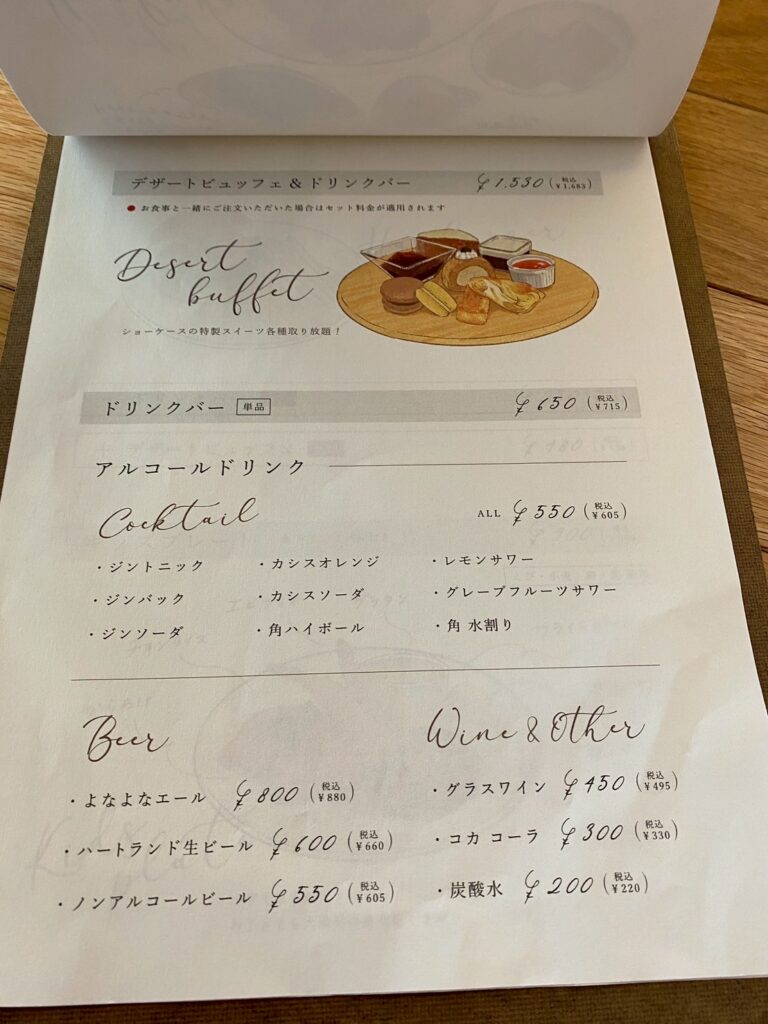 デザートビュッフェ & ドリンクバー ¥1,530 (税込 ¥1,683)
● お食事と一緒にご注文いただいた場合はセット料金が適用されます
Desert
buffet
ショーケースの特製スイーツ各種取り放題!
ドリンクバー 単品 ¥650 (税込 ¥715)
アルコールドリンク
Cocktail ALL ¥550 (税込 ¥605)
・ジントニック ・カシスオレンジ ・レモンサワー
・ジンバック ・カシスソーダ ・グレープフルーツサワー
・ジンソーダ ・角ハイボール ・角 水割り
Beer
・よなよなエール ¥800 (税込 ¥880)
・ハートランド生ビール ¥600 (税込 ¥660)
・ノンアルコールビール ¥550 (税込 ¥605)
Wine & Other
・グラスワイン ¥450 (税込 ¥495)
・コカ コーラ ¥300 (税込 ¥330)
・炭酸水 ¥200 (税込 ¥220)